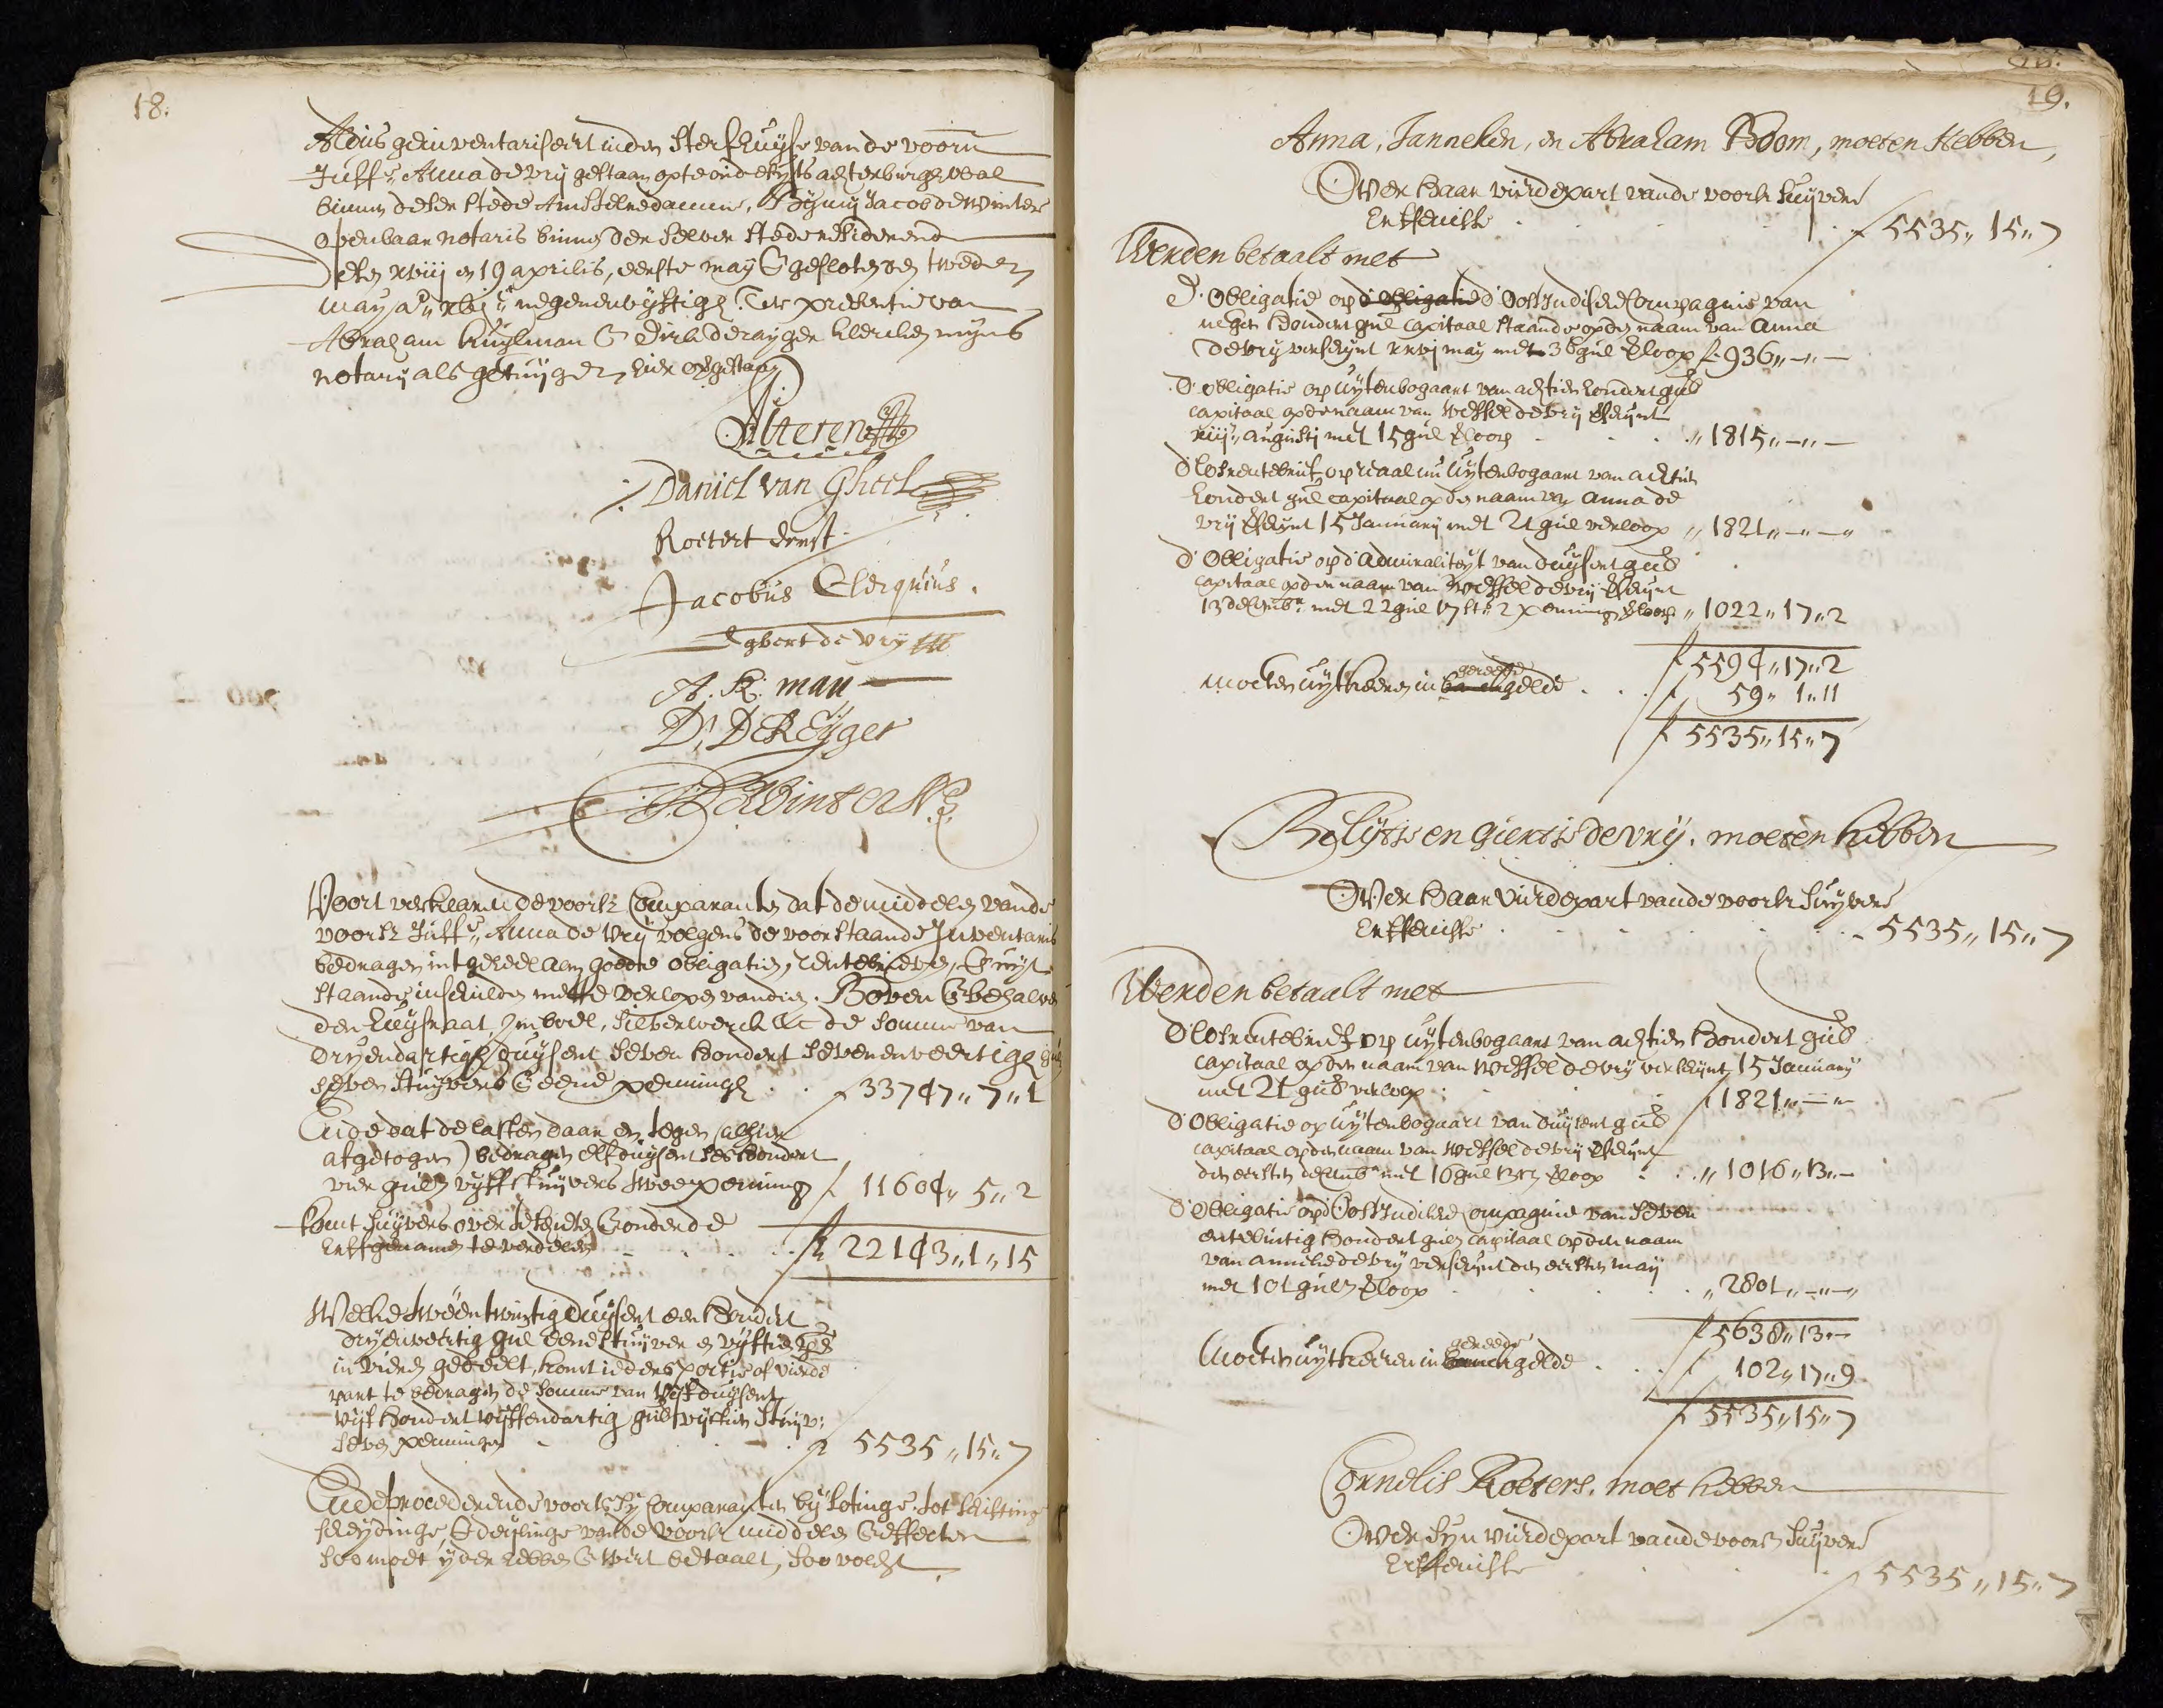 18.
Aldus geinventariseert inden sterfhuyse vande voorn
Juffr. Anna de vry gestaan opte oude Zyts achterburghwal
binnen deser stede Amstelredamme, By my Jacob de Winter
openbaar notaris binnen der selver stede residerend
desen xviij en 19 aprilis, eerste may & gesloten den tweeden
may ao. xvic negenenvyftigh. Ter presentie van
Abraham kuylman & Dirk de rayger klercken myns
notarij als getuygen hier over gestaan
Daniel van Gheel
Roetert Ernst
Jacobus Clerquius.
Egbert de Vry
A. K. man
D. DeREyger
J. D Winter N. P.
Voort verklaren de voorsz Comparanten dat de middelen vande
voorsz Juffr. Anna de Vry volgens de voorstaande Inventaris
bedragen int geheel aen goede obligatien, rentebrieven, & uyt
staande inschulden mette verlopen vandien. Boven & behalven
den huysraat, Imboel, silverwerck &c de somme van
dryendartigh duysent seven hondert sevenenveertigh gul
seven stuyvers & eene penningh . . f 33747,, 7,, 1
Ende dat de lasten daar en tegen (alhier
afgetogen) bedragen elf duysent ses hondert
vier gulen vyff stuyvers twee penning f 11604,, 5,, 2
komt suyvers over te schieten & onder de
Erffgenamen te verdelen . . . . f 22143,, 1,, 15
Welke tweentwintig duysent een hondert
dryenveertig gul eene stuyver en vyftien pen
in vieren gedeelt, komt ieders portie of vierde
part te bedragen de somme van Vyf duysent
vyf hondert vyffendartig gul vyftien stuyv:
seven penningen . . . f 5535,, 15,, 7
Ende procederende voorts sy Comparanten by lotinge tot schifting
scheydinge, & deylinge vande voorsz middelen & effecten
soo moet yder hebben & wert betaalt, soo volcht
19.
Anna, Janneken, en Abraham Boom, moeten Hebben,
Over haar vierdepart vande voorsz suyvere
Erffenisse . . . f 5535,, 15,, 7
Werden betaalt met
D'obligatie op d'obligatie d'oostindische Compagnie van
negen hondert gul capitaal staande op den naam van Anna
de vry verschynt xxvj may met 36 gul verloop f 936,,-,,-
D'obligatie op uytenbogaart van achtien hondert gul
capitaal op de naam van Wessel de Vry verschynt
xiij augusti met 15 gul verloop . . ,, 1815,,-,,-
D'losrentebrief op uytenbogaart van achtien
hondert gul capitaal op den naam van Anna de
vry verschynt 15 January met 21 gul verloop ,, 1821,,-,,-
D'obligatie op d'Admiraliteyt van duysent gul
capitaal op den naam van Wessel de vry verschynt
13 decemb. met 22 gul 17 st. 2 penning verloop ,, 1022,, 17,, 2
f 5594,, 17,, 2
moeten uytkeeren in baar gereede gelde . . . f 59,, 1,, 11
f 5535,, 15,, 7
Belytje en Giertje de vry, moeten hebben
Over haar vierdepart vande voorsz suyvere
Erffenisse . . . 5535,, 15,, 7
Werden betaalt met
D'losrentebrief op uytenbogaart van achtien hondert gul
capitaal op den naam van Wessel de vry verschynt 15 January
met 21 gul verloop . f 1821,,-,,-
D'obligatie op uytenbogaart van duysent gul
capitaal op den naam van Wessel de vry verschynt
den eersten decemb. met 16 gul 13 st verloop . . ,, 1016,, 13,,-
D'obligatie op d'Oostindische Compagnie van seven
entwintig hondert gulen capitaal op den naam
van Anneke de vry verschynt den eersten may
met 101 gulen verloop . . . ,, 2801,,-,,-
f 5638,, 13,,-
Moeten uytkeeren in baar gereede gelde . . . f 102,, 17,, 9
f 5535,, 15,, 7
Cornelis Roeters, moet hebben
Over syn vierdepart vande voorsz suyvere
Erffenisse . . . f 5535,, 15,, 7